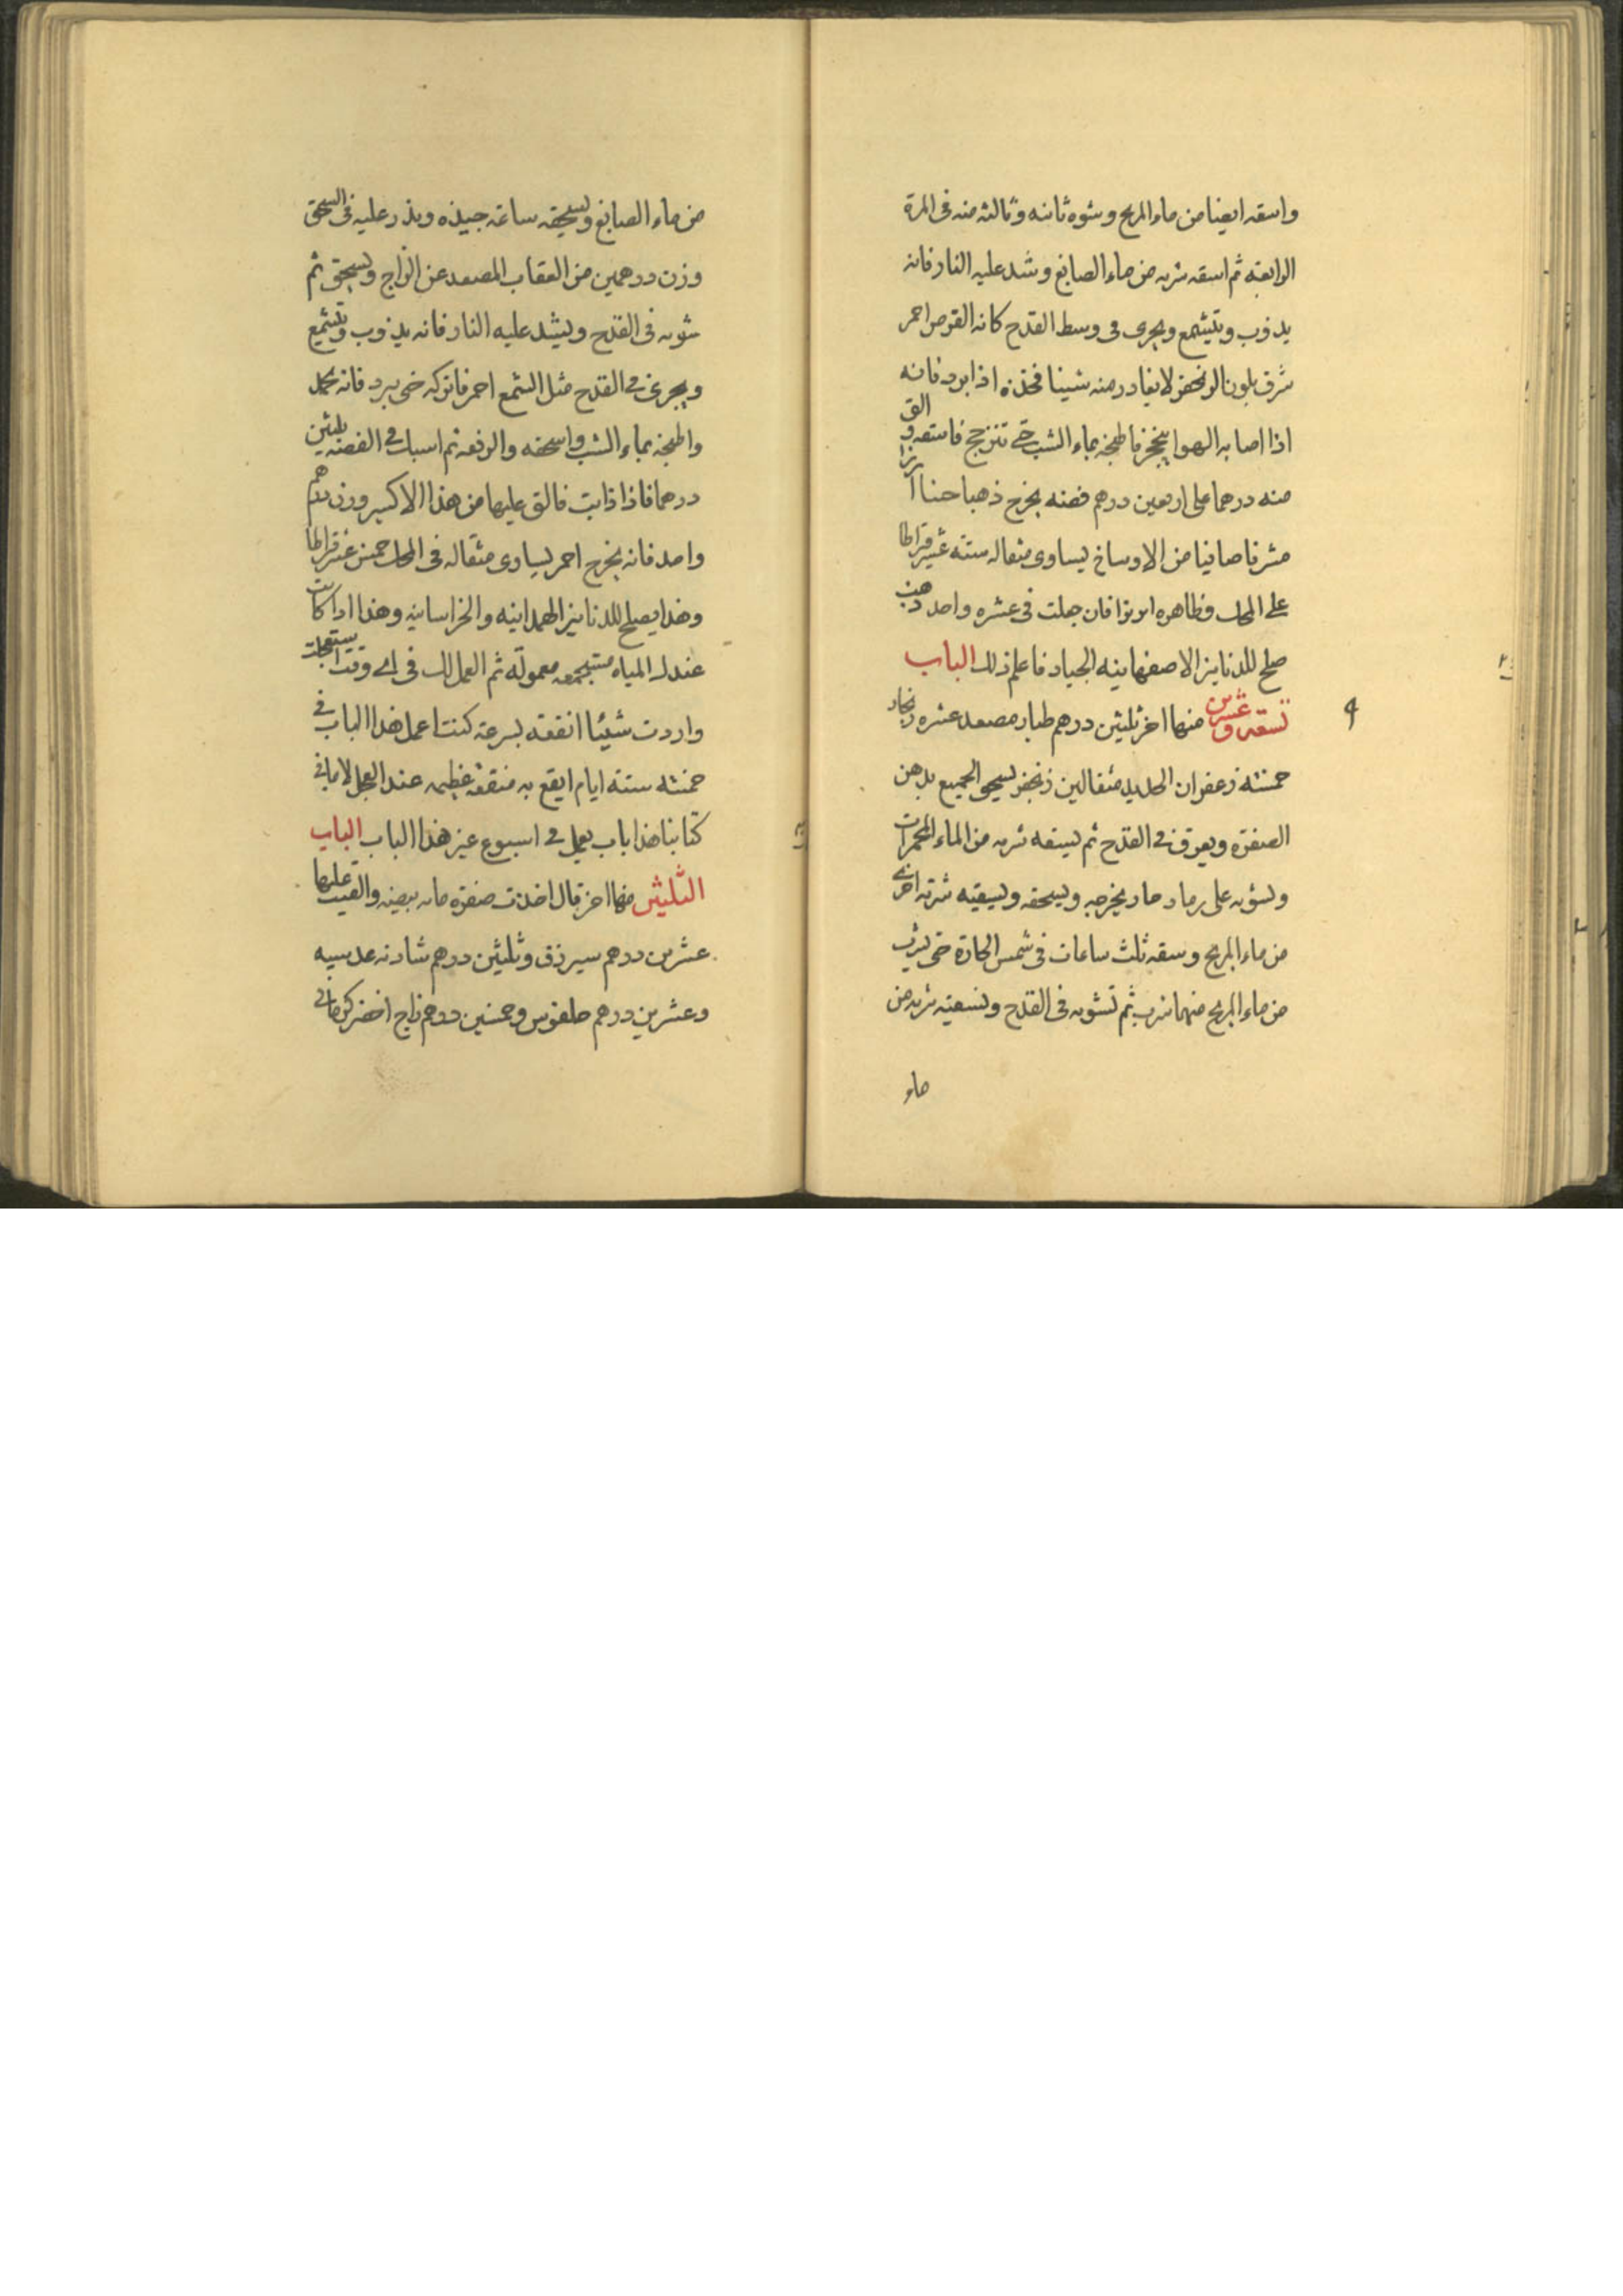 واسقه ايضا من ماء المريخ وشوه ثانيه وثالثه منه فى المرة
الرابعة ثم اسقه شربه من ماء الصابغ وشد عليه النار فانه
يذوب ويتشمع ويجرى فى وسط القدح كانه القرص احمر
شرف بلون الزنجفر لا يغادر منه شيئا فخذه اذا برد فانه
اذا اصابه الهوا يتخز فاطبخه بماء الشب حتى تنزجج فاسقه والق
منه درهما على اربعين درهم فضه يخرج ذهبا حسنا
مشرفا صافيا من الاوساخ يساوى مثقاله ستة عشر قيراطا
على المحك وظاهره ابريزا فان جعلت فى عشره واحد ذهب
صلح للدنانير الاصفهانيه الجياد فاعلم ذلك الباب
تسعه وعشرين منها اخر ثلثين درهم طيار مصعد عشره زنجار
خمسة زعفران الحديد مثقالين زنجفر يسحق الجميع بدهن
الصفرة ويعرق فى القدح ثم يسقه شربه من الماء المحمرات
ويشويه على رماد حار يخرجه ويسحقه ويسقيه شربه اخرى
من ماء المريخ وسقه ثلث ساعات فى شمس الحارة حتى يشرب
من ماء المريخ منهما شرب ثم تشويه فى القدح وتسقيه شربه من
ماء
من ماء الصابغ ويسحقه ساعة جيده ويذر عليه فى السحق
وزن درهمين من العقاب المصعد عن الزاج ويسحق ثم
شويه فى القدح ويشد عليه النار فانه يذوب ويتشمع
ويجرى فى القدح مثل الشمع احمر فاتركه حتى يبرد فانه
واطبخه بماء الشب واسحقه والرفعه ثم اسبك فى الفضه ثلثين
درهما فاذا ذابت فالق عليها من هذا الاكسير وزن درهم
واحد فانه يخرج احمر يساوى مثقاله فى المحك خمس عشر قيراطا
وهذا يصلح للدنانير الهمدانيه والخراسانيه وهذا اذا كانت
عندك المياه مستجمعه معموله ثم العمل لك فى اى وقت استعجلت
واردت شيئا انفقه بسرعة كنت اعمل هذا الباب فى
خمسه ستة ايام ايقع به منفعة عظيمه عند العجل لا ما فى
كتابنا هذا باب يعمل فى اسبوع غير هذا الباب الباب
الثلثين منها اخر قال اخذت صفرة مايه بيضه والقيت عليها
عشرين درهم سيرزق وثلثين درهم شادنه عدسيه
وعشرين درهم حلقوس وخمسين درهم زاج اخضر كرمانى